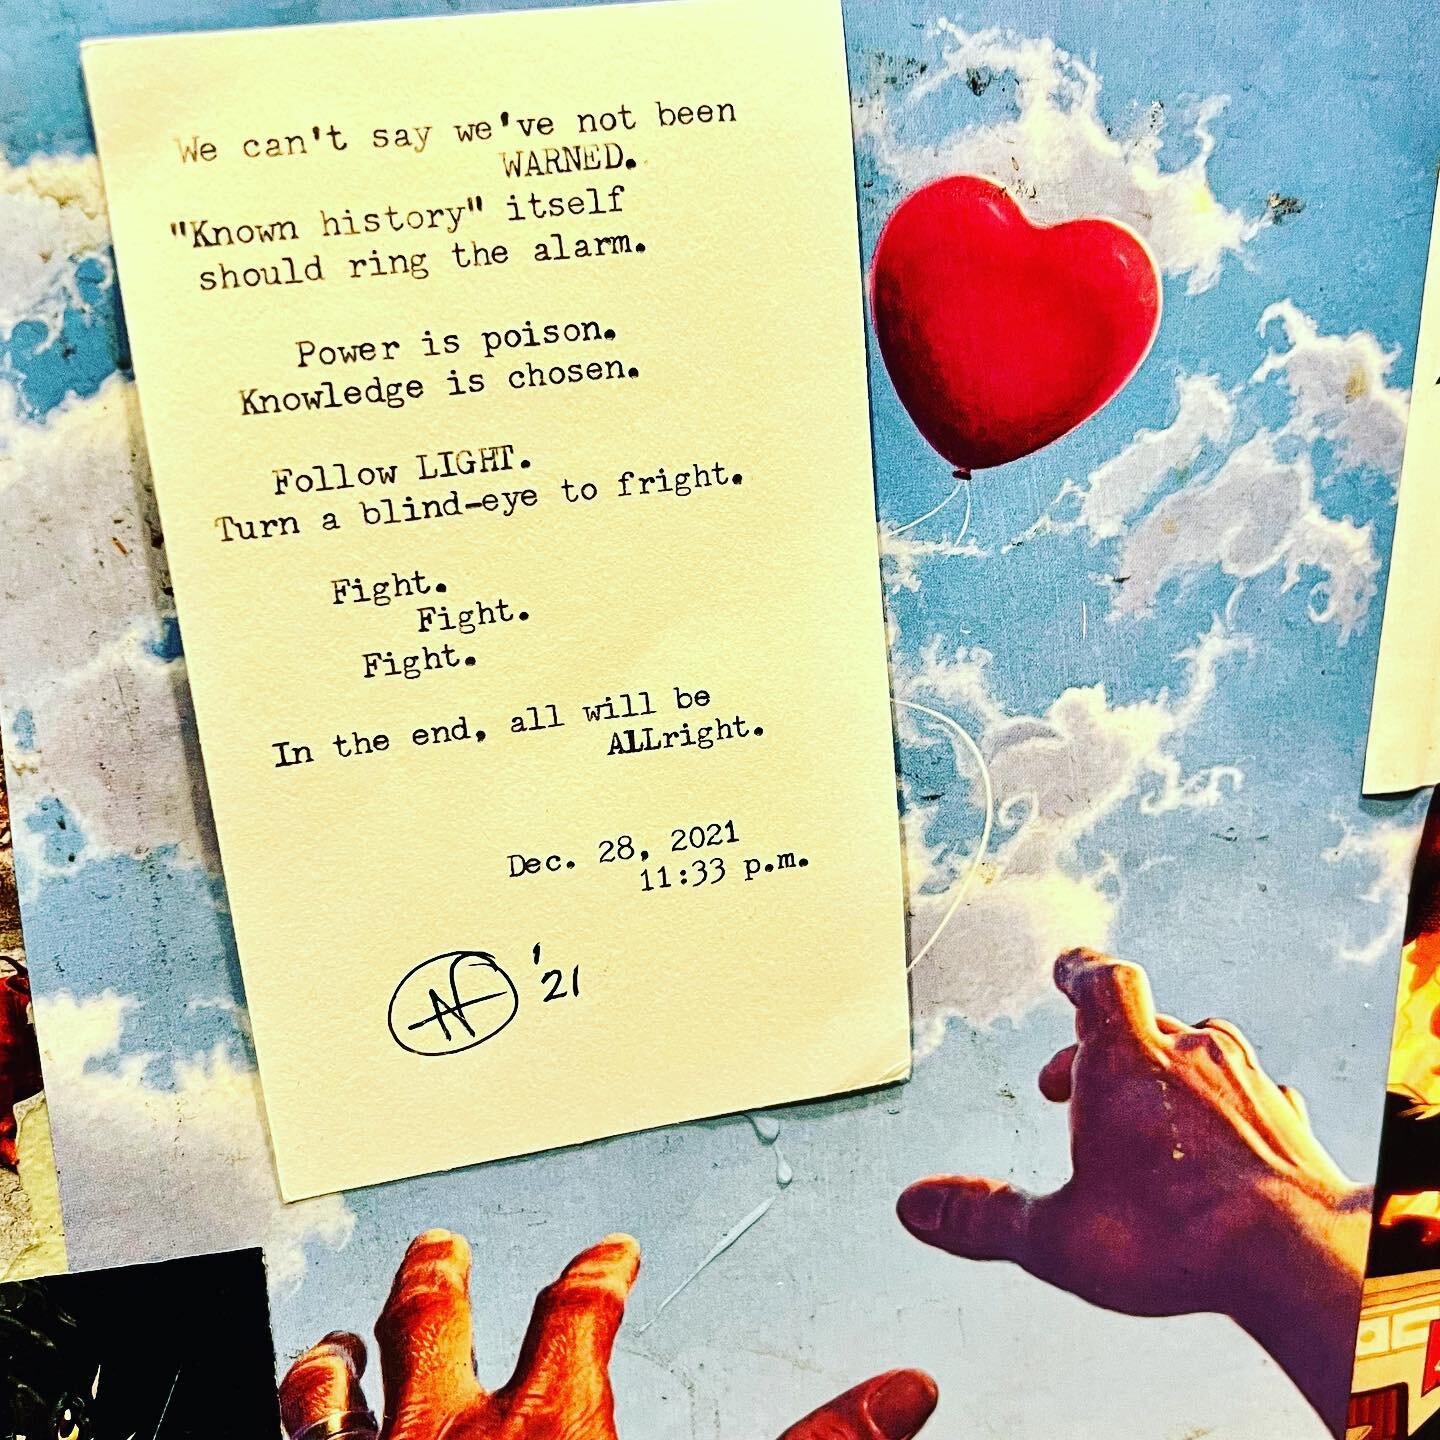 We can't say we've not been
WARNED.
"Known history" itself
should ring the alarm.
Power is poison.
Knowledge is chosen.
Follow LIGHT.
Turn a blind-eye to fright.
Fight.
Fight.
Fight.
In the end, all will be
ALLright.
Dec. 28, 2021
11:33 p.m.
'21